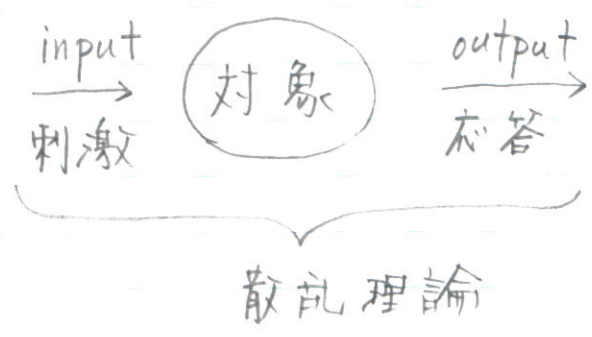 input
対象
output
刺激
応答
散乱理論